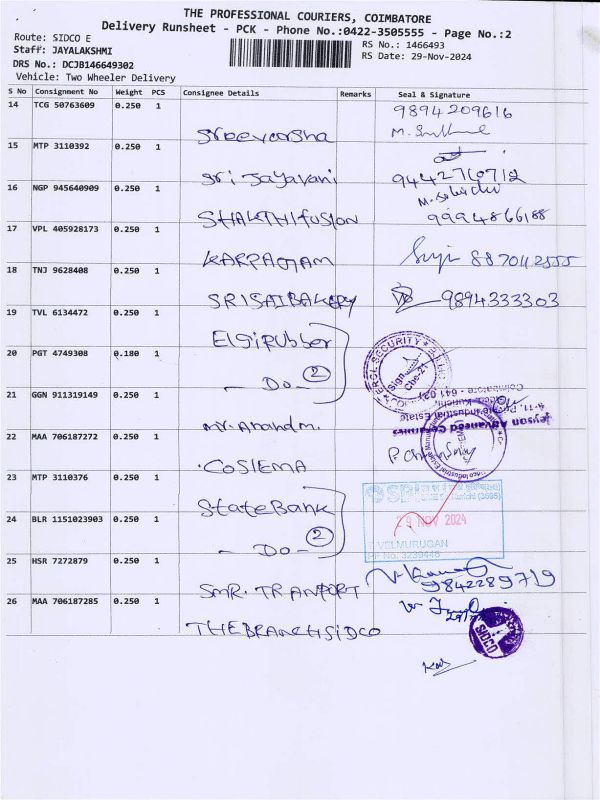 THE PROFESSIONAL COURIERS, COIMBATORE
Delivery Runsheet - PCK - Phone No.:0422-3505555 - Page No.:2
Route: SIDCO E
RS No.: 1466493
Staff: JAYALAKSHMI
RS Date: 29-Nov-2024
DRS No.: DCJB146649302
Vehicle: Two Wheeler Delivery
S No Consignment No Weight PCS Consignee Details Remarks Seal & Signature
14 TCG 50763609 0.250 1 9894209616
Sreevarsha
15 MTP 3110392 0.250 1
Sri Jayavani 9442710712
16 NGP 945640909 0.250 1
SHAKTHIfusion 9994866188
17 VPL 405928173 0.250 1
KARPAGAM 887042555
18 TNJ 9628408 0.250 1
SRISAIBAKERY 9894333303
19 TVL 6134472 0.250 1
ElgiRubber
20 PGT 4749308 0.180 1
- Do - 2
21 GGN 911319149 0.250 1
Mr. Anand m.
Jeyson Advanced Ceramics
22 MAA 706187272 0.250 1
COSIEMA
23 MTP 3110376 0.250 1
State Bank
SBI
24 BLR 1151023903 0.250 1 29 NOV 2024
- Do - 2
VELMURUGAN
25 HSR 7272879 0.250 1
SMR. TRANPORT 9842289719
26 MAA 706187285 0.250 1
THEBRANCHSIDCO
SIDCO